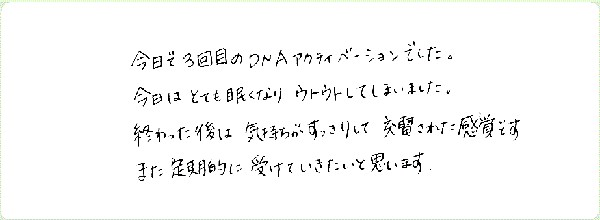 今日で3回目のDNAアクティベーションでした。
今日はとても眠くなり ウトウトしてしまいました。
終わった後は 気持ちがすっきりして 充電された感覚です
また 定期的に 受けていきたいと思います.